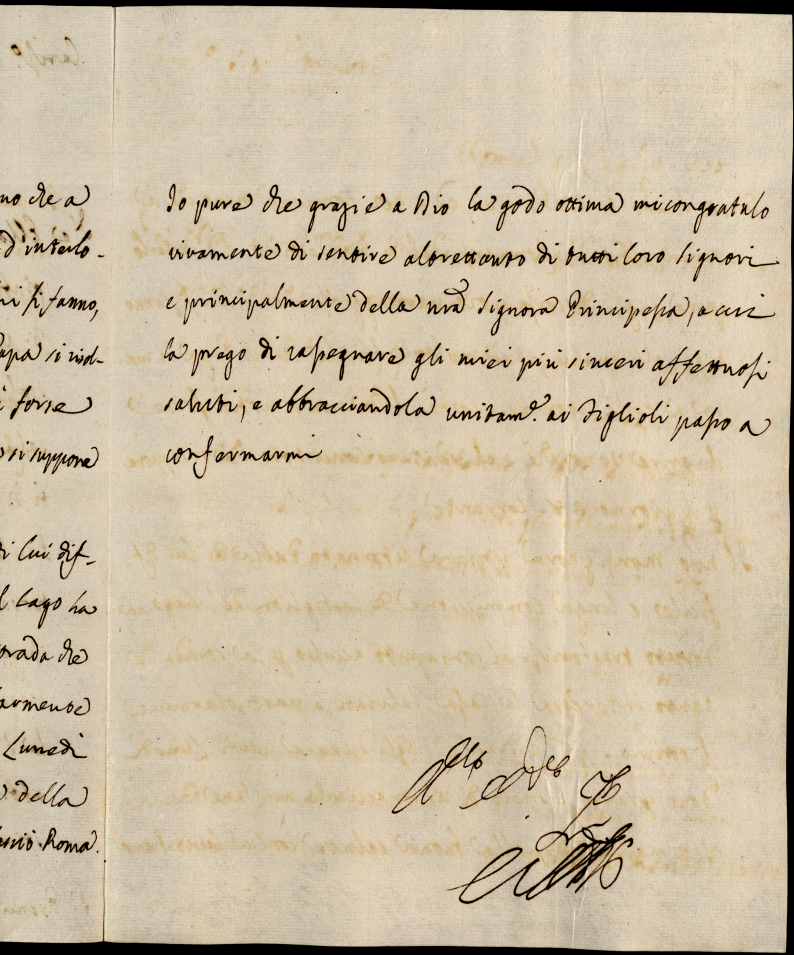 no che a
d'interlo-
ni si fanno,
apa si viol-
i forse
o si suppone
i lui dif-
l Lago ha
trada che
larmente
Lunedì
della
Roma.
Io pure che grazie a Dio la godo ottima mi congratulo
vivamente di sentire altrettanto di tutti loro Signori
e principalmente della nra Signora Principessa, a cui
la prego di rassegnare gli miei più sinceri affettuosi
saluti, e abbracciandola unitam.e ai Figlioli passo a
confermarmi